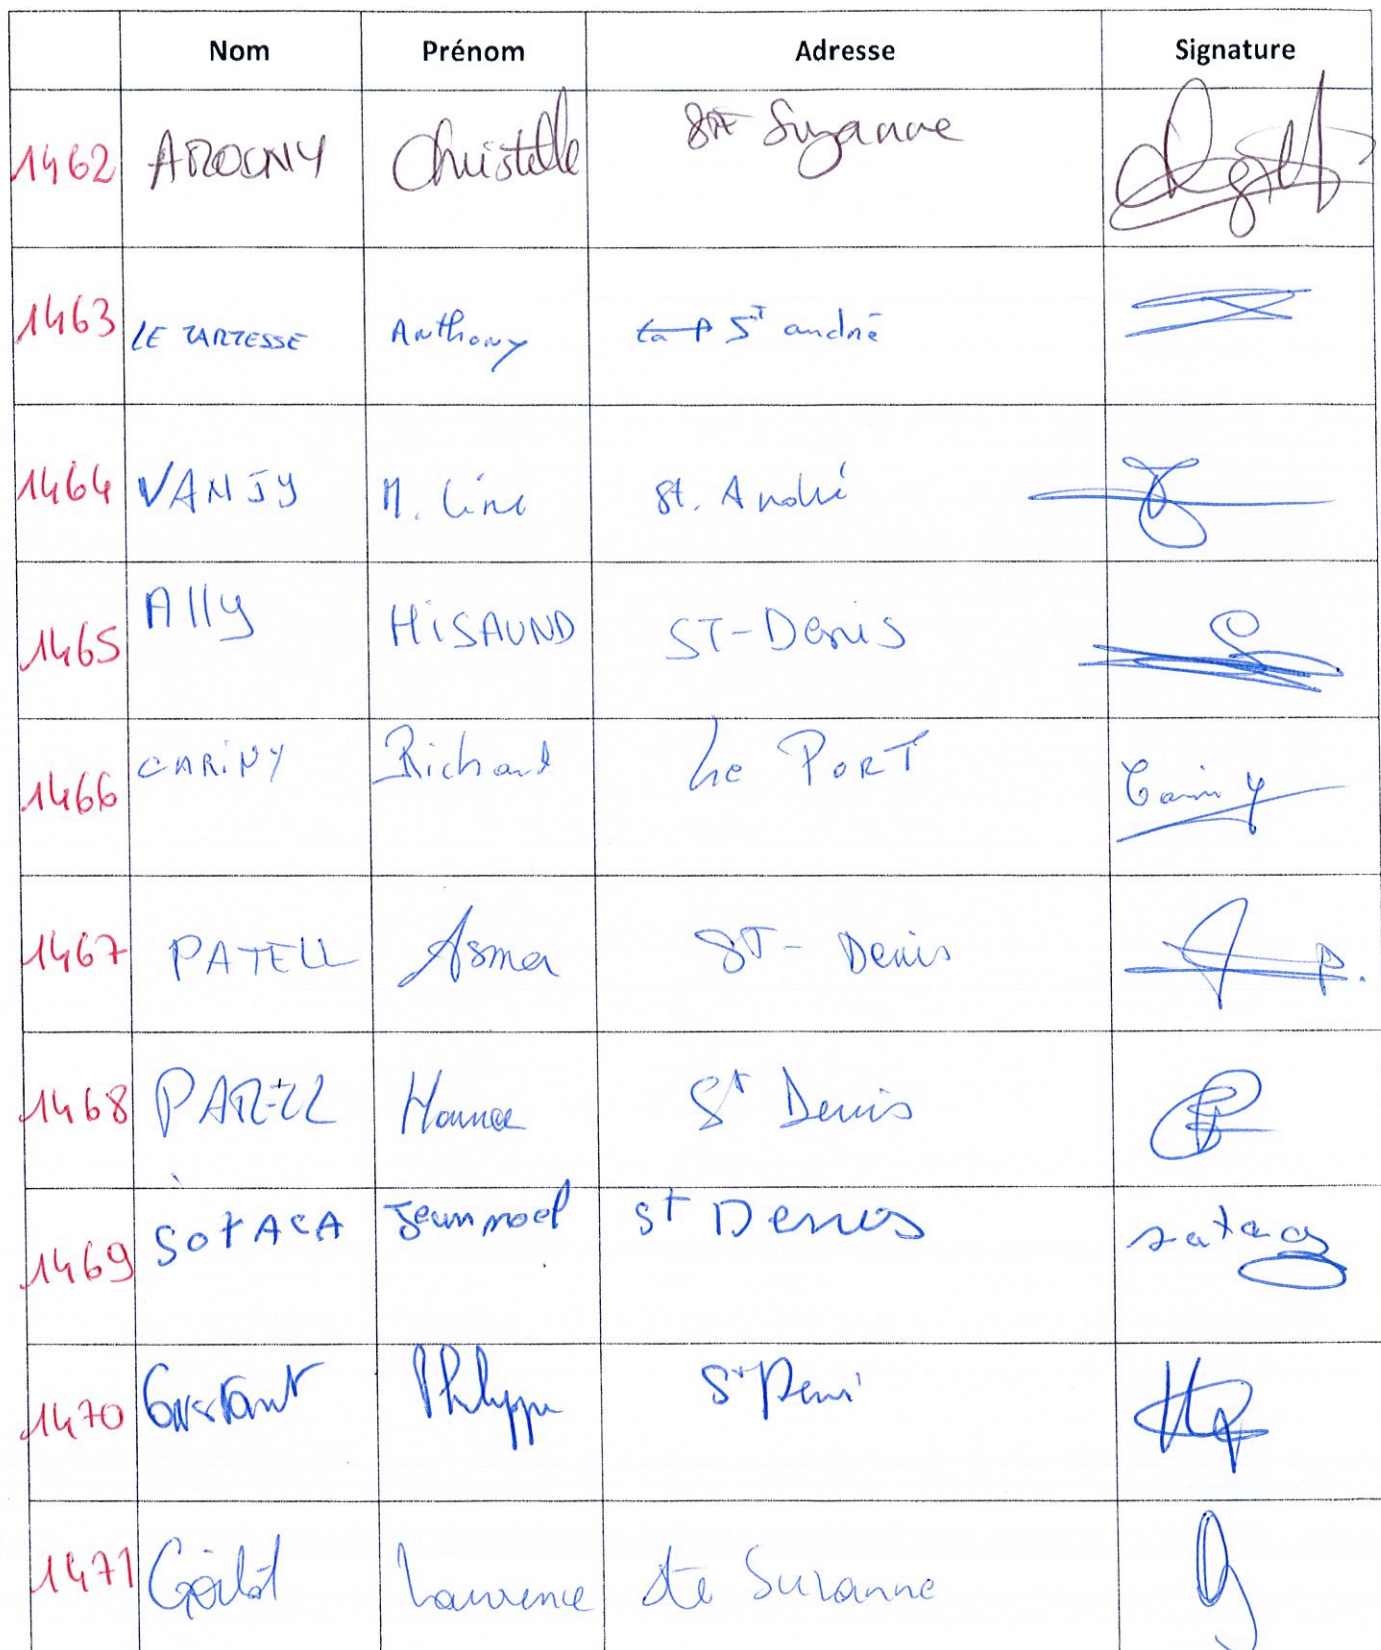 Nom Prénom Adresse Signature
1462 AROCNY Christelle Ste Suzanne
1463 LE Anthony St andré
1464 VANJY M. Line St. André
1465 Ally HISAUND ST-Denis
1466 CARINY Richard Le PORT
1467 PATELL Asma ST-Denis
1468 PATEL St Denis
1469 SOTACA Jean noel St Denis
1470 Constant Philippe St Deni
1471 Laurence Ste Suzanne